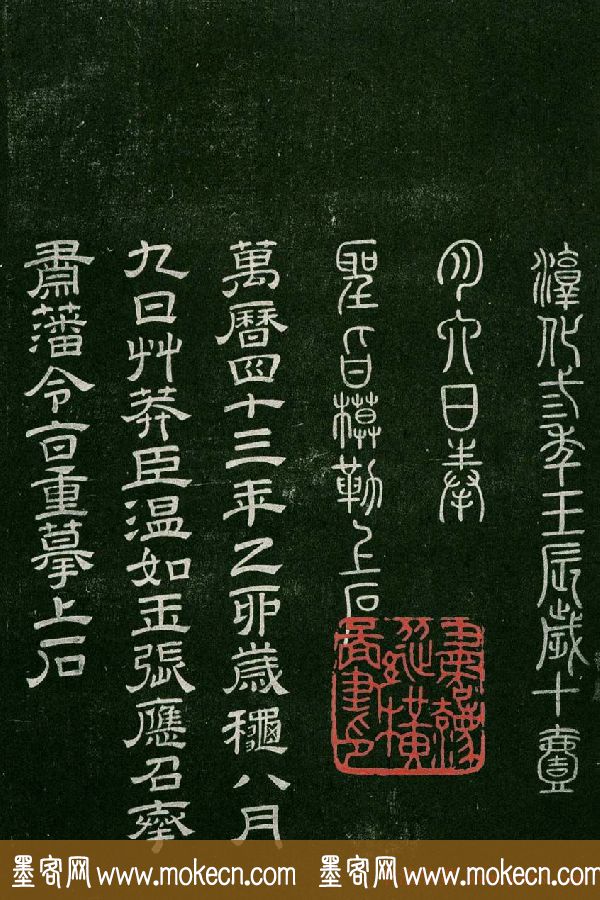 淳化弎季壬辰歲十壹
月六日奉
聖旨模勒上石
萬曆四十三年乙卯歲龝八月
九日艸莽臣温如玉張應召奉
肅藩令旨重摹上石
墨客网 www.mokecn.com 墨客网 www.mokecn.com